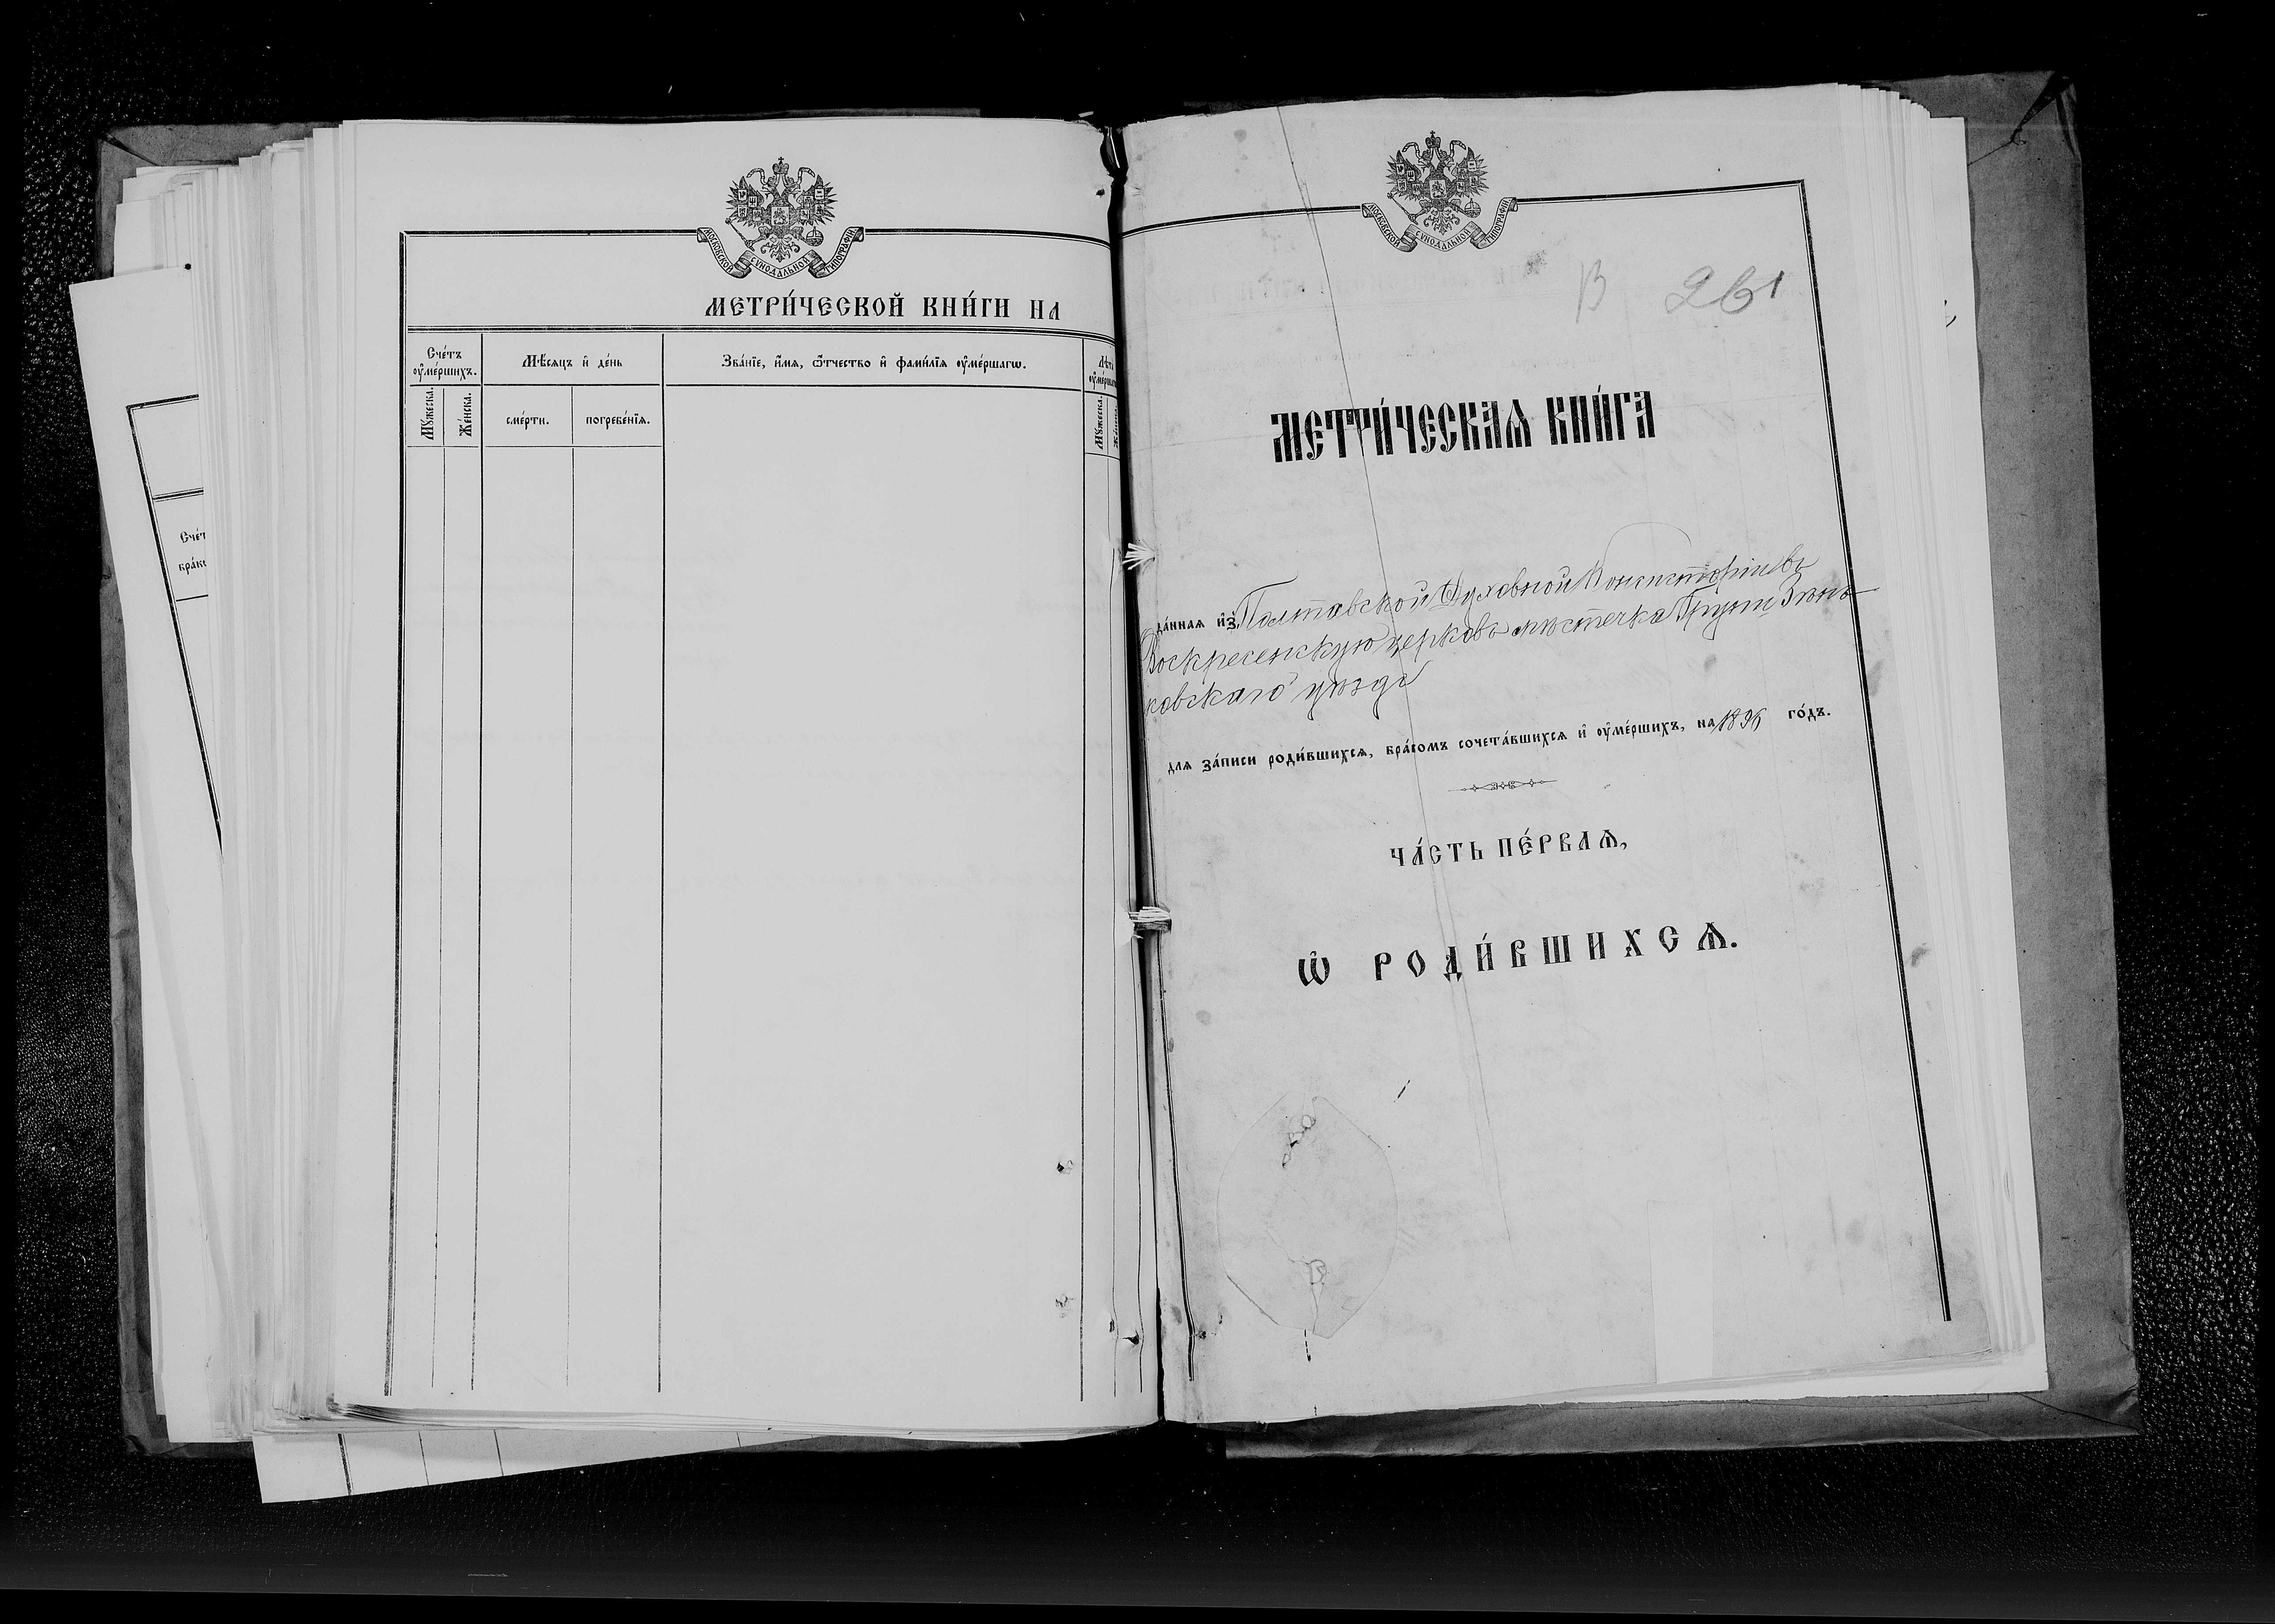 МОСКОВСКОЙ СѴНОДАЛЬНОЙ ТИПОГРАФІИ
МЕТРИ́ЧЕСКОЙ КНИ́ГИ НА
Сче́тъ ᲂу҆ме́ршихъ.
Мѣ́сяцъ и҆ де́нь
Зва́нїе, и҆́мѧ, ѻ҆́тчество и҆ фами́лїѧ ᲂу҆ме́ршагѡ.
Лѣта ᲂу҆ме́рш
Мꙋ́жеска.
Же́нска.
сме́рти.
погребе́нїѧ.
Мꙋ́жеска.
Же́нска.
Сче́т
бра́к
МОСКОВСКОЙ СѴНОДАЛЬНОЙ ТИПОГРАФІИ
В 261
МЕТРИ́ЧЕСКАѦ КНИ́ГА
да́нная и҆з̾ Полтавской Духовной Консисторіи въ
Воскресенскую церковь мѣстечка Груни Зѣнь-
ковскаго уѣзда
для за́писи роди́вшихсѧ, бра́комъ сочета́вшихсѧ и҆ ᲂу҆ме́ршихъ, на 1896 го́дъ.
ЧА́СТЬ ПЕ́РВАѦ,
Ѡ҆ РОДИ́ВШИХСѦ.